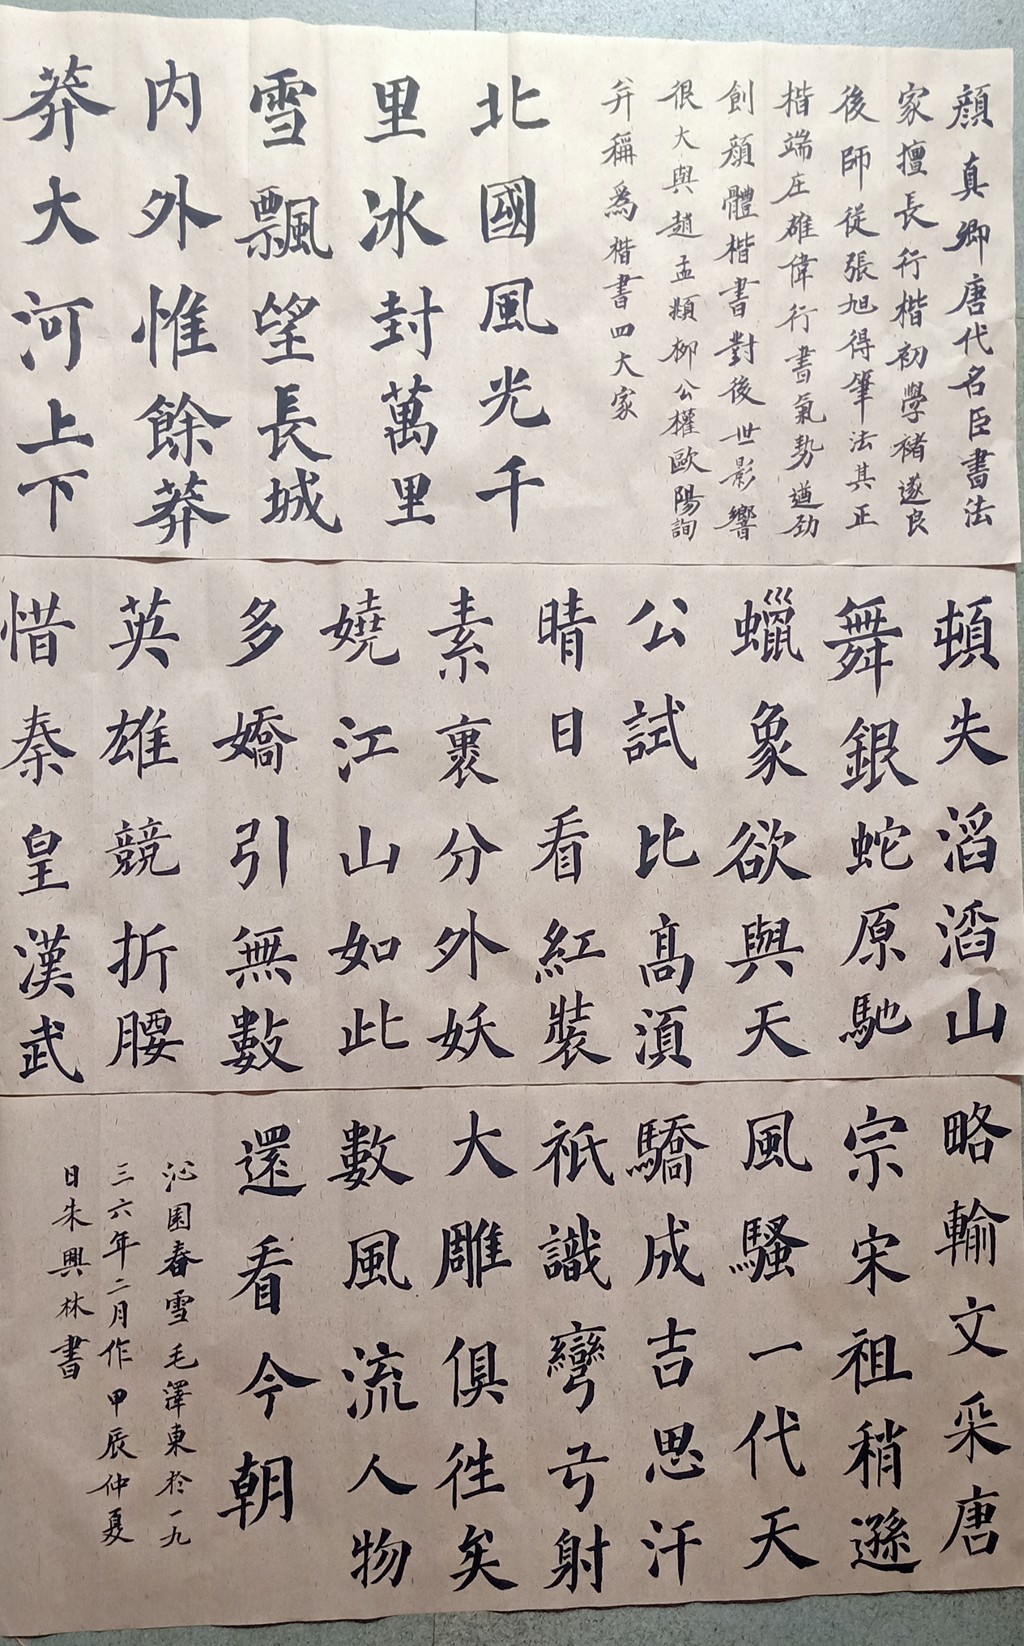 顔真卿唐代名臣書法
家擅長行楷初學褚遂良
後師從張旭得筆法其正
楷端庄雄偉行書氣勢遒劲
創顔體楷書對後世影響
很大與趙孟頫柳公權歐陽詢
并稱為楷書四大家
北國風光千
里冰封萬里
雪飄望長城
内外惟餘莽
莽大河上下
頓失滔滔山
舞銀蛇原馳
蠟象欲與天
公試比高須
晴日看紅裝
素裹分外妖
嬈江山如此
多嬌引無數
英雄競折腰
惜秦皇漢武
略輸文采唐
宗宋祖稍遜
風騷一代天
驕成吉思汗
祇識彎弓射
大雕俱徃矣
數風流人物
還看今朝
沁園春雪毛澤東於一九
三六年二月作甲辰仲夏
日朱興林書